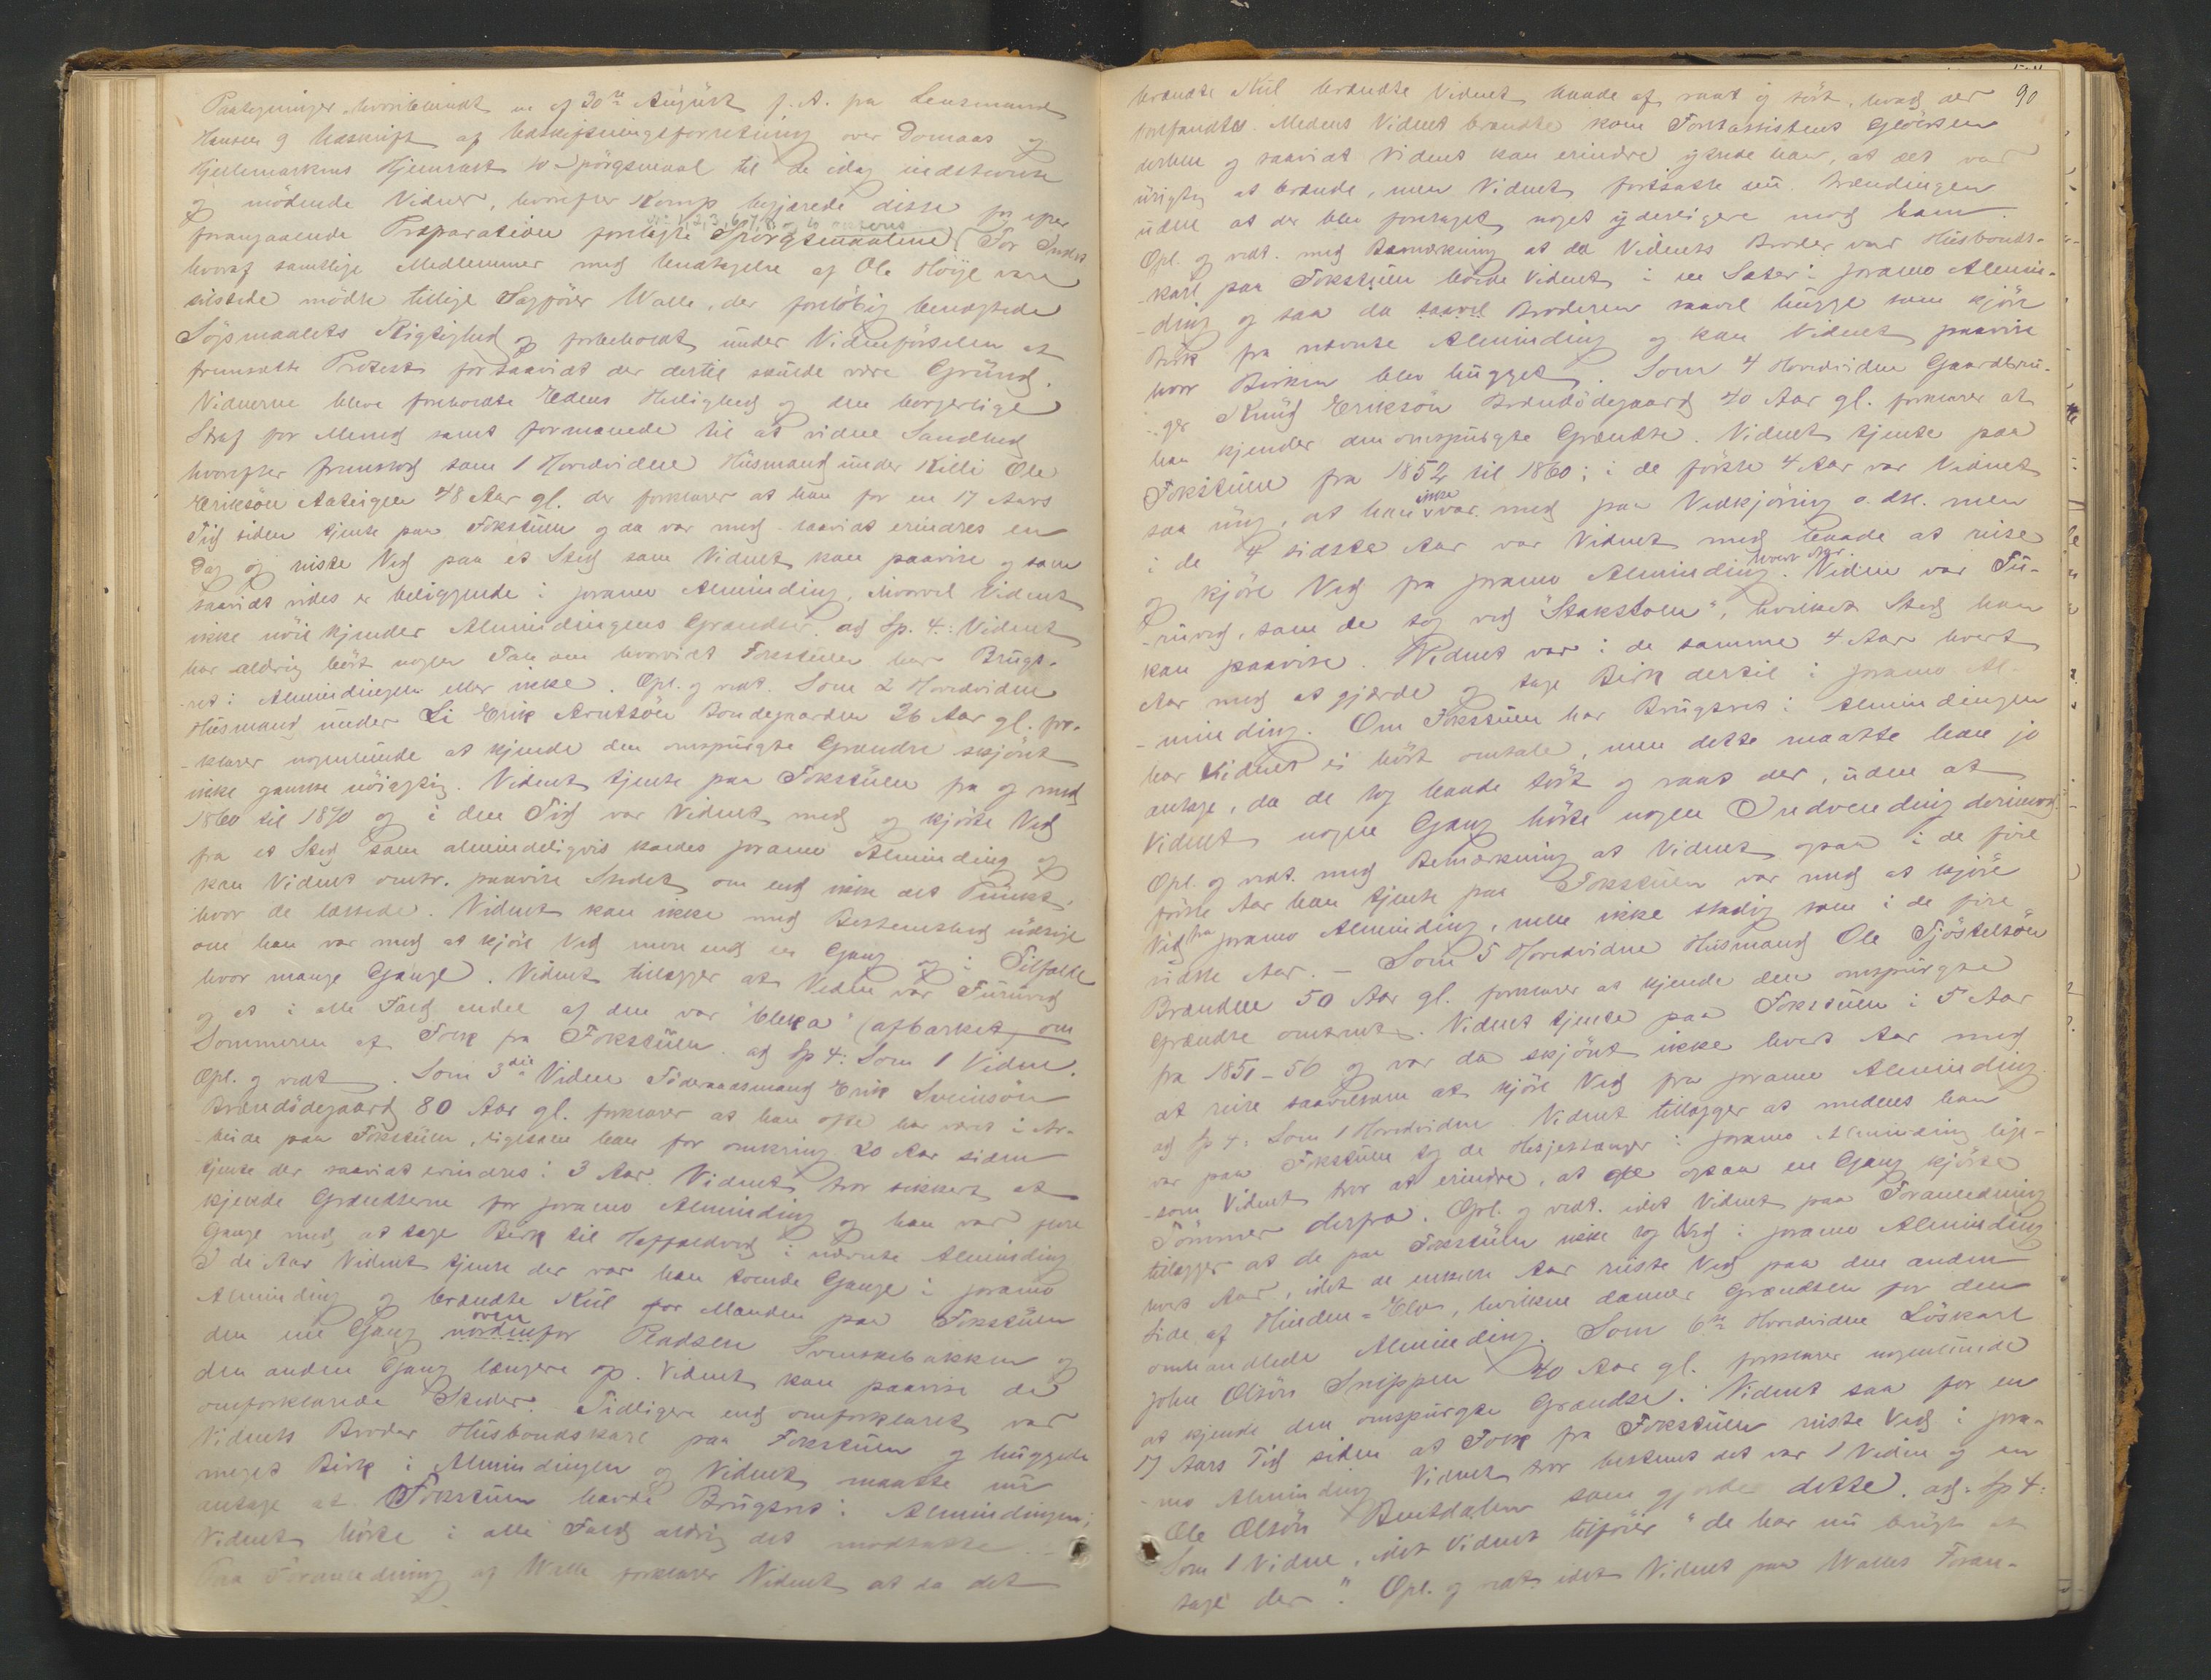 Paategninger hvoriblandt en af 30te August f. A. fra Lensmand
Hansen og Udskrift af Udskiftningsforretning over Domaas og
Hjellemarkens Hjemrast 10 Spörgsmaal til de idag indstevnte
og mödende Vidner, hvorefter Komp. begjærede disse for efter
No 1, 2, 3, 6, 7, 8 og 10
foregaaende Præparation forelagte Spörgsmaalene. For
hvoraf samtlige Medlemmer med Undtagelse af Ole Höije vare
tilstede mödte tillige Sagförer Walle, der forelöbig benegtede
Sögsmaalets Rigtighed og forbeholdt under Vidneförselen at
fremsætte Protest forsaavidt der dertil skulde være Grund.
Vidnerne bleve foreholdte Edens Hellighed og den borgerlige
Straf for Mened samt formanede til at vidne Sandhed
hvorefter fremstod som 1 Hovedvidne Husmand under Killi Ole
Eriksön Aateigen 48 Aar gl. der forklarer at han for en 17 Aars
Tid siden tjente paa Fokstuen og da var med saavidt erindres en
Dag og reiste Ved paa et Sted som Vidnet kan paavise og som
saavidt vides er beliggende i Joramo Alminding, hvorvel Vidnet
ikke nöie kjender Almindingens Grændser. ad Sp. 4: Vidnet
har aldrig hört nogen Tale om hvorvidt Fokstuen har Brugs-
ret i Almindingen eller ikke. Opl. og vedt. Som 2 Hovedvidne
Husmand under Li Erik Arntsön Bondegaarden 36 Aar gl. for-
klarer nogenlunde at kjende den omspurgte Grændse skjönt
ikke ganske nöiagtig. Vidnet tjente paa Fokstuen fra og med
1860 til 1870 og i den Tid var Vidnet med og kjörte Ved
fra et Sted som almindeligvis kaldes Joramo Alminding og
kan Vidnet omtr. paavise Stedet, om end ikke det Punkt,
hvor de læssede. Vidnet kan ikke med Bestemthed udsige
om han var med at kjöre Ved mere end en Gang og i Tilfælde
hvor mange Gange. Vidnet tillægger at Veden var Furuved
og at i alle Fald endel af den var "bleka" (afbarket om
Sommeren af Folk fra Fokstuen. ad Sp 4: Som 1 Vidne.
Opl. og vedt. Som 3die Vidne Föderaadsmand Erik Sveinsön
Brændödegaard 80 Aar gl. forklarer at han ofte har været i Ar-
beide paa Fokstuen, ligesom han for omkring 20 Aar siden
tjente der saavidt erindres i 3 Aar. Vidnet tror sikkert at
kjende Grændserne for Joramo Alminding og han var flere
Gange med at tage Birk til Hæfældved i nævnte Alminding
I de Aar Vidnet tjente der var han tvende Gange i Joramo
Alminding og brændte Kul for Manden paa Fokstuen
oven
den ene Gang nordenfor Pladsen Svenskebakken og
den anden Gang længere op. Vidnet kan paavise de
omforklarede Steder. Tidligere end omforklaret var
Vidnets Broder Husbondskarl paa Fokstuen og huggede
meget Birk i Almindingen og Vidnet maatte nu
antage at Fokstuen havde Brugsret i Almindingen;
Vidnet hörte i alle Fald aldrig det modsatte. –
Paa Foranledning af Walle forklarer Vidnet at da det
90
brændte Kul brændte Vidnet baade af raat og tört, hvad der
forefandtes. Medens Vidnet brændte kom Forstassistent Glöersen
derhen og saavidt Vidnet kan erindre ytrede han, at det var
urigtig at brænde, men Vidnet fortsatte nu Brændingen
uden at der blev foretaget noget yderligere mod ham.
Opl. og vedt. med Bemærkning at da Vidnets Broder var Husbonds-
karl paa Fokstuen boede Vidnet i en Sæter i Joramo Almin-
ding og saa da saavel Broderen saavel hugge som kjöre
Birk fra nævnte Alminding og kan Vidnet paavise
hvor Birken blev hugget. Som 4 Hovedvidne Gaardbru-
ger Knud Eriksön Brændödegaard 40 Aar gl. forklarer at
han kjender den omspurgte Grændse. Vidnet tjente paa
Fokstuen fra 1852 til 1860; i de förste 4 Aar var Vidnet
ikke
saa ung, at han var med paa Vedkjöring o. dsl. men
i de 4 sidste Aar var Vidnet med baade at reise
hvert Aar.
og kjöre Ved fra Joramo Alminding. Veden var Fu-
ruved, som de tog ved "Stakstoen", hvilket Sted han
kan paavise. Vidnet var i de samme 4 Aar hvert
Aar med at gjærde og tage Birk dertil i Joramo Al-
minding. Om Fokstuen har Brugsret i Almindingen
har Vidnet ei hört omtale, men dette maatte han jo
antage, da de tog baade tört og raat der, uden at
Vidnet nogen Gang hörte nogen Indvending derimod
Opl. og vedt. med Bemærkning at Vidnet ogsaa i de fire
förste Aar han tjente paa Fokstuen var med at kjöre
Ved fra Joramo Alminding, men ikke stadig som i de fire
sidste Aar. – Som 5 Hovedvidne Husmand Ole Tjöstelsön
Brændene 50 Aar gl. forklarer at kjende den omspurgte
Grændse omtrent. Vidnet tjente paa Fokstuen i 5 Aar
fra 1851–56 og var da skjönt ikke hvert Aar med
at reise saavelsom at kjöre Ved fra Joramo Alminding.
ad Sp 4: Som 1 Hovedvidne. Vidnet tillægger at medens han
var paa Fokstuen tog de Hesjestænger i Joramo Alminding lige-
som Vidnet tror at erindre, at de ogsaa en Gang kjörte
Tömmer derfra. Opl. og vedt. idet Vidnet paa Foranledning
tillægger at de paa Fokstuen ikke tog Ved i Joramo Alminding
hvert Aar, idet de enkelte Aar reiste Ved paa den anden
Side af Hunden=Elv, hvilken danner Grændsen for den
omhandlede Alminding. Som 6te Hovedvidne Löskarl
John Olsön Snippen 40 Aar gl. forklarer nogenlunde
at kjende den omspurgte Grændse. Vidnet saa for en
17 Aars Tid siden at Folk fra Fokstuen reiste Ved i Jora-
mo Alminding. Vidnet tror bestemt det var 1 Vidne og en
Ole Olsön Bentdalen som gjorde dette. ad. Sp 4:
Som 1 Vidne, idet Vidnet tilföier "de har nu brugt at
tage der". Opl. og vedt. idet Vidnet paa Walles Foran-